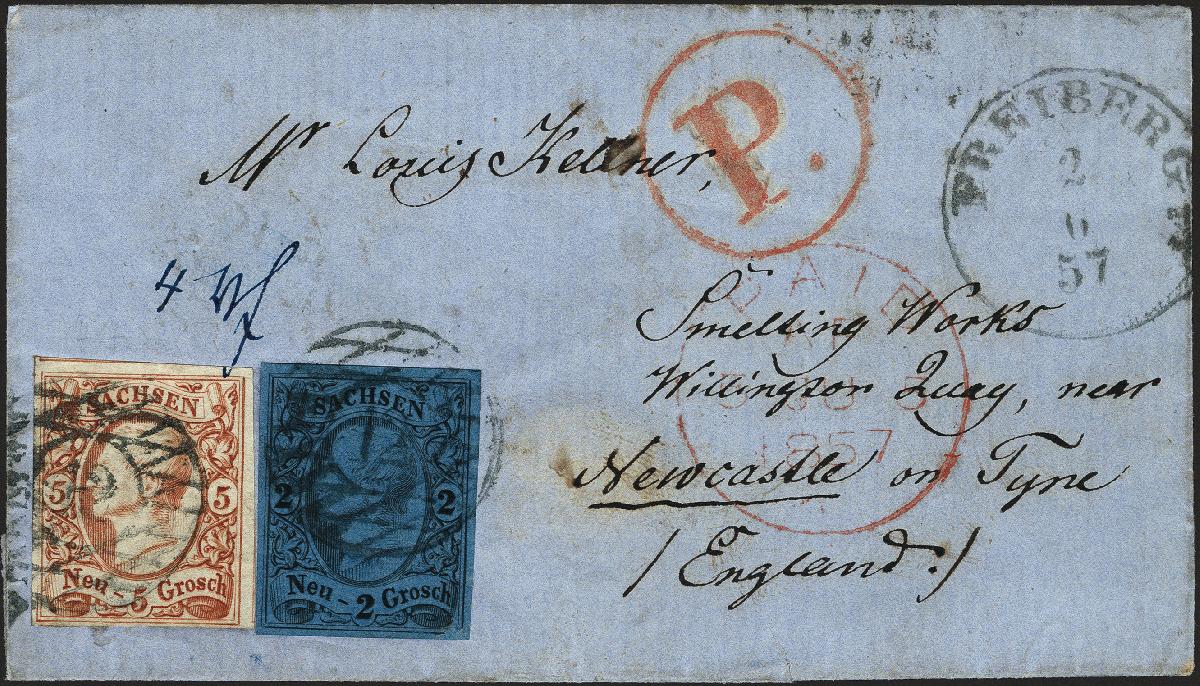 P.
FREIBERG
2
6
57
Mr Louis Kellner,
4
PAID
1857
Smelting Works
Willington Quay, near
Newcastle on Tyne
(England.)
SACHSEN
5 5
Neu - 5 Grosch
SACHSEN
2 2
Neu - 2 Grosch